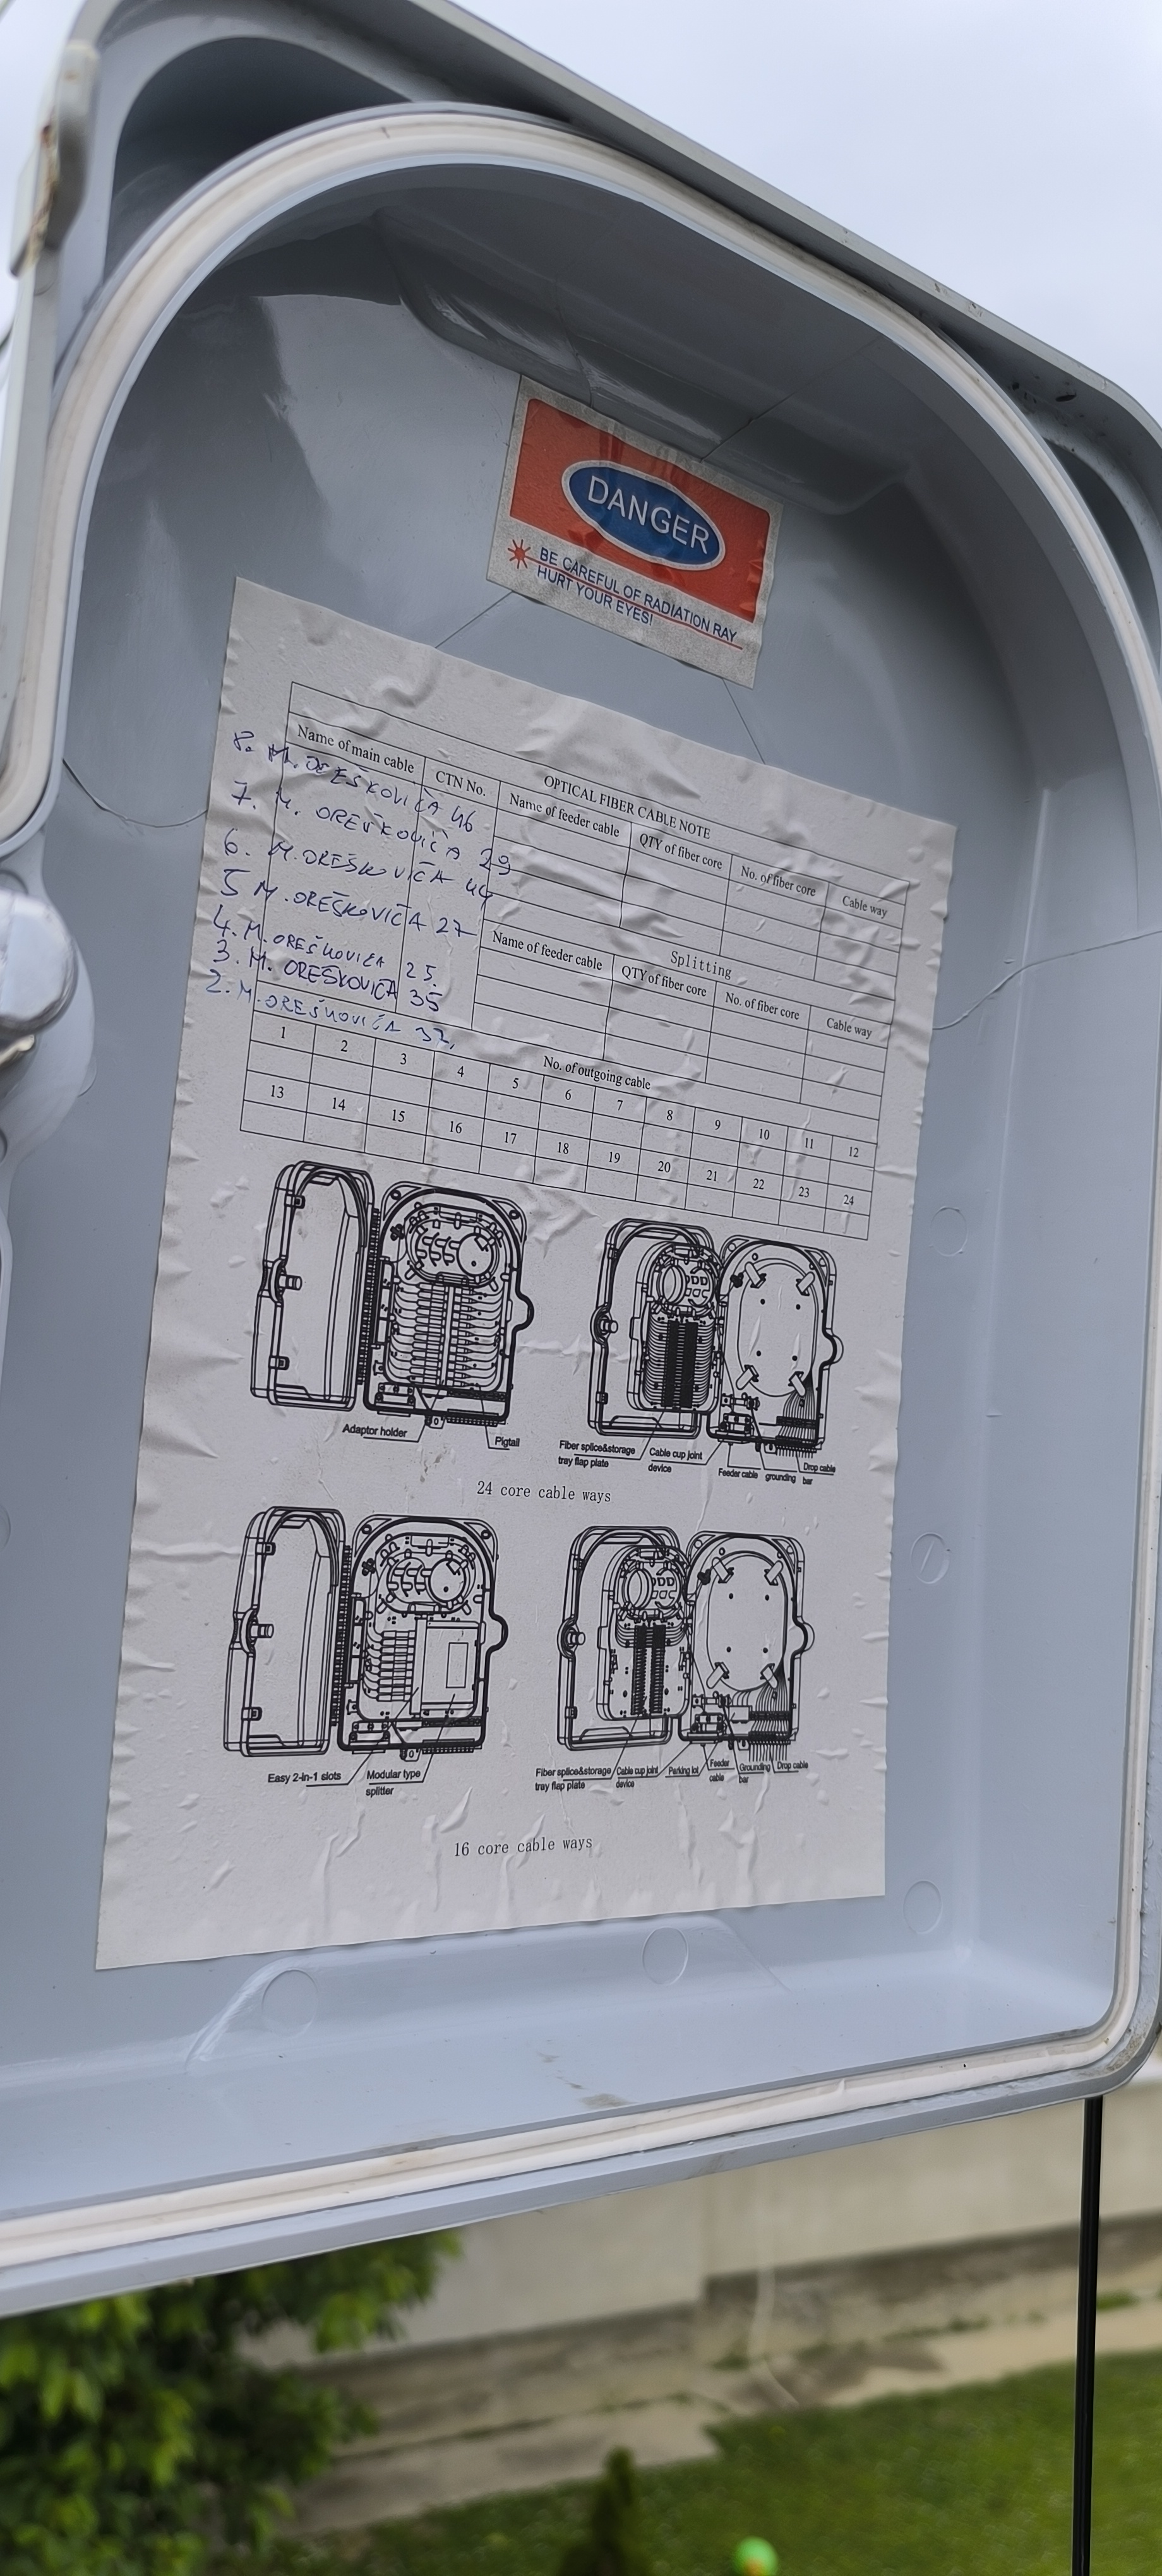 DANGER
BE CAREFUL OF RADIATION RAY
HURT YOUR EYES!
OPTICAL FIBER CABLE NOTE
Name of main cable CTN No. Name of feeder cable QTY of fiber core No. of fiber core Cable way
8. M. OREŠKOVIĆA 46
7. M. OREŠKOVIĆA 29
6. M. OREŠKOVIĆA 44
5 M. OREŠKOVIĆA 27
4. M. OREŠKOVIĆA 25.
3. M. OREŠKOVIĆA 35
2. M. OREŠKOVIĆA 32,
Splitting
Name of feeder cable QTY of fiber core No. of fiber core Cable way
No. of outgoing cable
1 2 3 4 5 6 7 8 9 10 11 12
13 14 15 16 17 18 19 20 21 22 23 24
Adaptor holder Pigtail
Fiber splice&storage tray flap plate
Cable cup joint device
Feeder cable
grounding bar
Drop cable
24 core cable ways
Easy 2-in-1 slots
Modular type splitter
Fiber splice&storage tray flap plate
Cable cup joint device
Parking lot
Feeder cable
Grounding bar
Drop cable
16 core cable ways